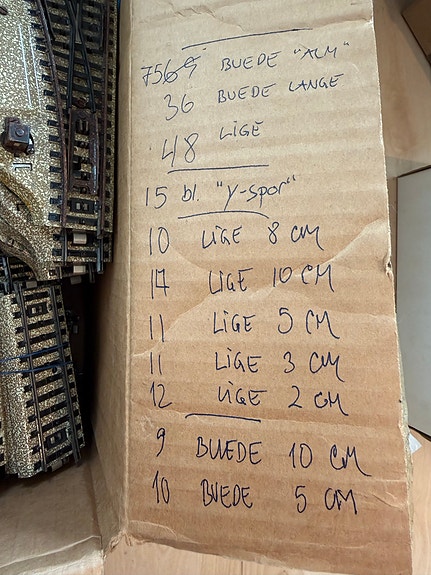 BUEDE "ALM"
36 BUEDE LANGE
48 LIGE
15 bl. "Y-spor"
10 LIGE 8 CM
17 LIGE 10 CM
11 LIGE 5 CM
11 LIGE 3 CM
12 LIGE 2 CM
9 BUEDE 10 CM
10 BUEDE 5 CM